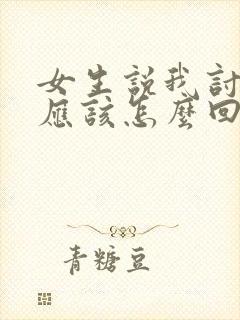 女生説我討
應該怎麼回
青糖豆